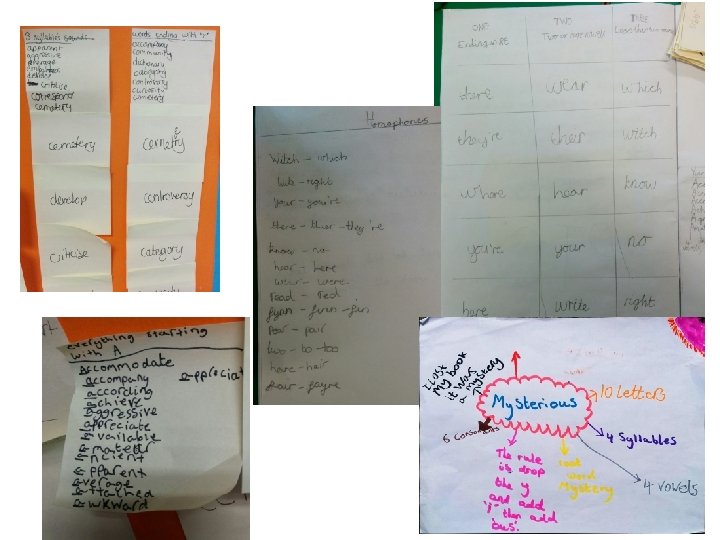 3 syllables sounds
apparent
aggressive
average
develop
criticise
correspond
cemetery
words ending with 'y'
accompany
community
dictionary
category
controversy
curiosity
cemetery
cemetery
develop
criticise
cemetry
controversy
category
Homophones
witch - which
right
your - you're
there - their - they're
know - no
hear - here
wear - were
road -
pair
two - to - too
hair
ONE
Ending in RE
TWO
Two or more vowels
THREE
dare
wear
which
they're
their
witch
where
hear
know
you're
your
no
here
write
right
everything starting
with A
Accommodate
accompany
according
achieve
aggressive
appreciate
available
amateur
ancient
apparent
average
attached
awkward
appreciat
I lost
My book
it was
a mystery
Mysterious
10 letters
4 syllables
4 vowels
6 consonants
The rule
is drop
the y
and add
'i' then add
'ous'.
root
word
Mystery